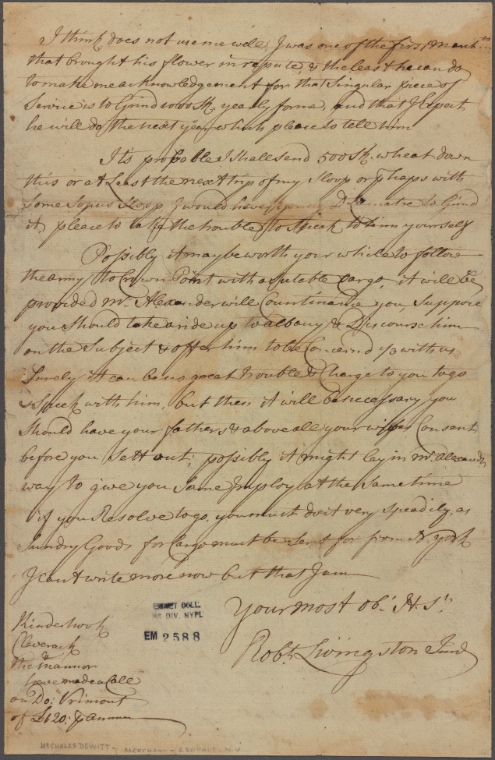 I think does not use me well, I was one of the first March.ts
that brought his flower in repute, & the least he can do
to make me acknowledgement for that Singular piece of
Service is to Grind 1000 Sk. yearly for me, and that I Expect
he will do the next year, which please to tell him
Its probable I shall send 500 Sk. wheat down
this or at Least the next trip of my Sloop or p'haps with
Some Sopus Sloop, I would have to Grind
it, please to take the trouble to Speek to him yourself
Possibly it may be worth your while to follow
the army to Crown Point with a sutable Cargo, it will be
provided Mr. Alexander will Countinance you, Suppose
you should take a ride up to albany & Discourse him
on the Subject & offer him to be Concernd with us,
Surely it can be no great trouble & Charge to you to go
& Speek with him, but then it will be necessary you
should have your fathers & above all your wifes Consent
before you Sett out; possibly it might lay in Mr. Alexanders
way to give you Some Imploy at the Same time
if you Resolve to go, you must do it very Speedily, as
Sundry Goods for Cargo must be Sent for from N York
I cant write more now but that I am
Your most ob.t H. S.t
Rob.t Livingston Jun.r
Kinderhook
Claverack
the Mannor
have made a Call
on Do:
of £120. p annum
EMMET COLL.
MS. DIV. NYPL
EM 2588
Mr CHARLES DEWITT MERCHANT N.Y